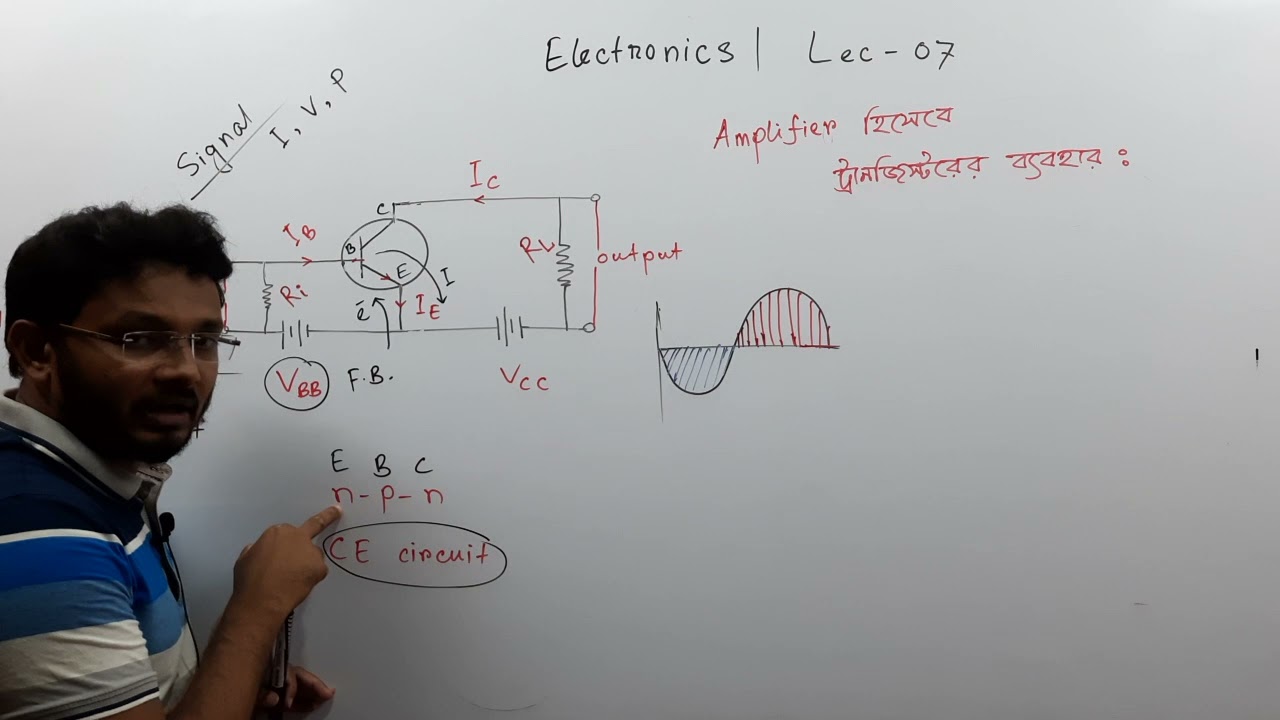 Electronics | Lec-07
Amplifier হিসেবে
ট্রানজিস্টরের ব্যবহার :
Signal
I, V, P
I_C
C
I_B
B
E
I
R_i
ē
I_E
R_L
output
V_BB
F.B.
V_CC
E B C
n-p-n
CE circuit